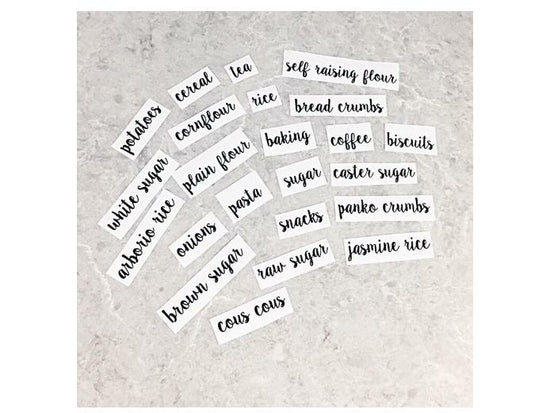 tea
self raising flour
cereal
rice
bread crumbs
potatoes
cornflour
baking
coffee
biscuits
plain flour
white sugar
sugar
caster sugar
pasta
arborio rice
onions
snacks
panko crumbs
brown sugar
raw sugar
jasmine rice
cous cous